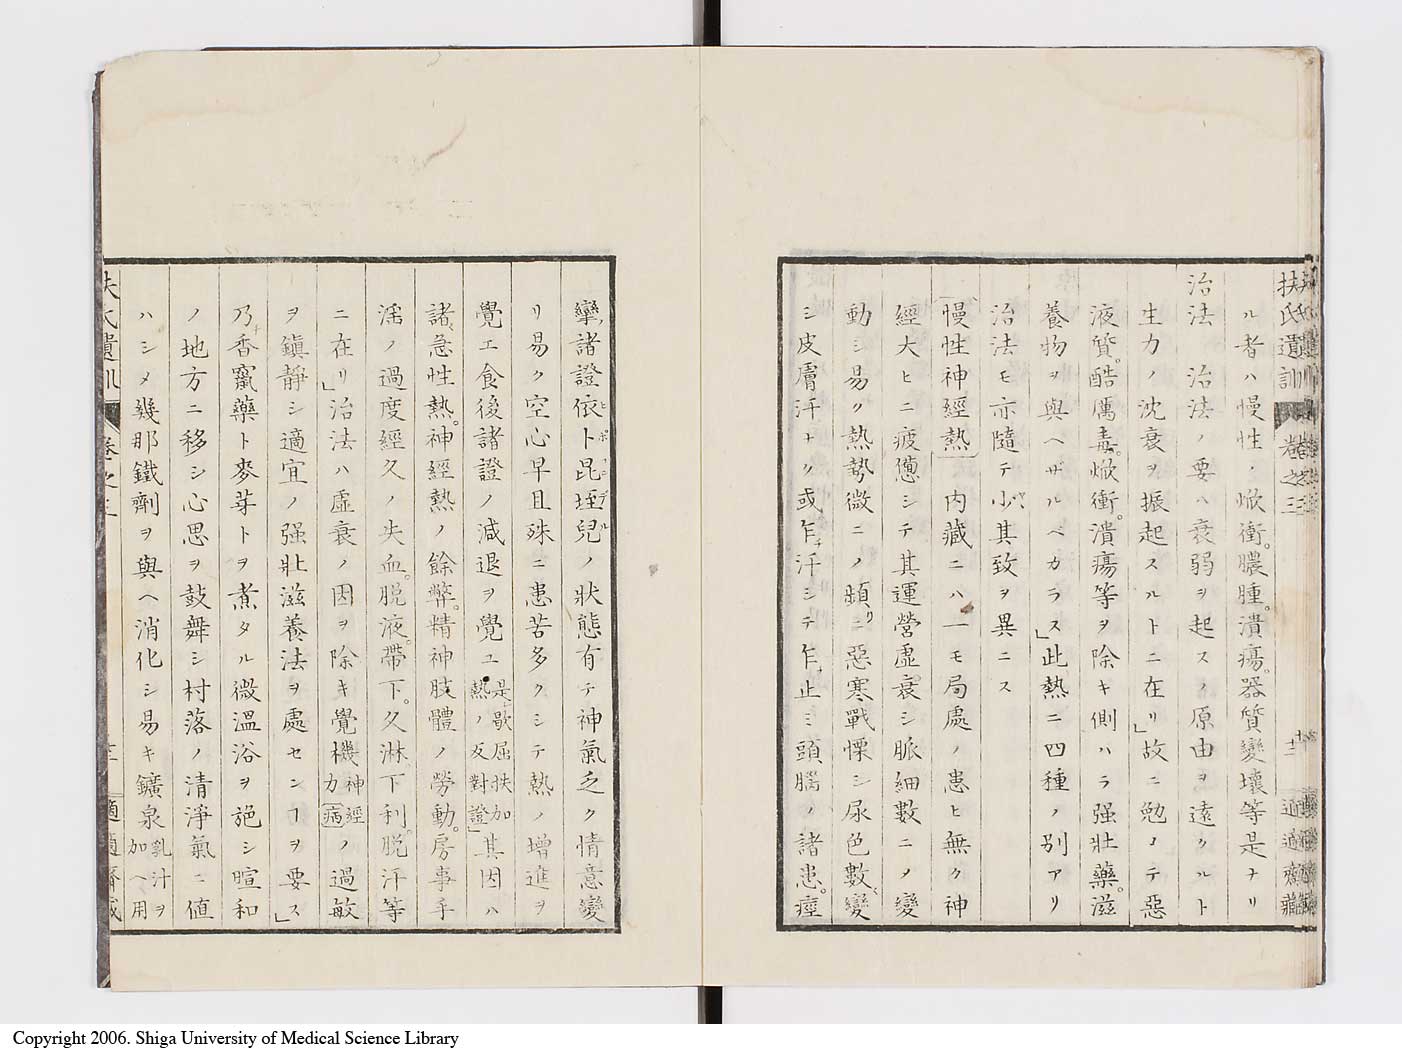 扶氏遺訓 卷之三 十二 適適齋藏
ル者ハ慢性ノ焮衝。膿腫。潰瘍。器質變壞等是ナリ
治法 治法ノ要ハ衰弱ヲ起スノ原由ヲ遠クルト
生力ノ沈衰ヲ振起スルトニ在リ」故ニ勉メテ惡
液質。酷厲毒。焮衝。潰瘍等ヲ除キ側ハラ强壯藥。滋
養物ヲ與ヘザルベカラス」此熱ニ四種ノ別アリ
治法モ亦隨テ小ヤヽ其致ヲ異ニス
慢性神經熱 内藏ニハ一モ局處ノ患ヒ無ク神
經大ヒニ疲憊シテ其運營虛衰シ脈細數ニノ變
動シ易ク熱勢微ニノ頻リニ惡寒戰慄シ尿色數〻變
シ皮膚汗ナク或乍チ汗シテ乍チ止ミ頭腦ノ諸患。痙
攣諸證依ト昆垤兒ヒポコンデルノ狀態有テ神氣乏ク情意變
リ易ク空心早旦殊ニ患苦多クシテ熱ノ增進ヲ
覺エ食後諸證ノ減退ヲ覺ユ是歇屈扶加熱ノ反對證」其因ハ
諸〻急性熱。神經熱ノ餘弊。精神肢體ノ勞動。房事手
淫ノ過度經久ノ失血。脱液。帶下。久淋下利。脱汗等
ニ在リ」治法ハ虛衰ノ因ヲ除キ覺機神經力病ノ過敏
ヲ鎭靜シ適宜ノ强壯滋養法ヲ處センコヲ要ス」
乃チ香竄藥ト麥芽トヲ煮タル微溫浴ヲ施シ暄和
ノ地方ニ移シ心思ヲ鼓舞シ村落ノ清淨氣ニ値
ハシメ幾那鐵劑ヲ與ヘ消化シ易キ鑛泉乳汁ヲ加ヘ用
扶氏遺訓 卷之三 十二 適適齋藏
Copyright 2006. Shiga University of Medical Science Library